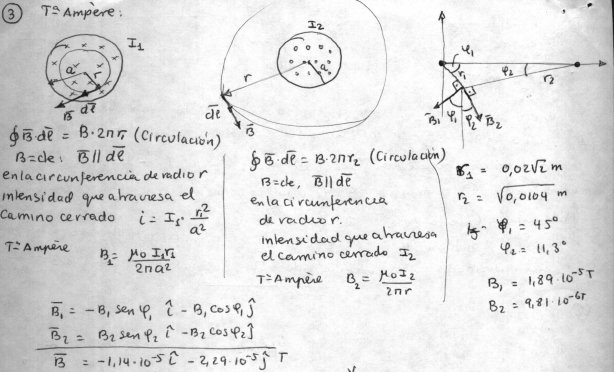 3 Tª Ampère:
I₁
a
r
B̄ dℓ̄
∮B̄·dℓ̄ = B·2πr₁ (Circulación)
B=cte, B̄ ∥ dℓ̄
en la circunferencia de radio r
intensidad que atraviesa el
camino cerrado i = I₁· r₁²/a²
Tª Ampère B₁ = μ₀ I₁r₁ / 2πa²
I₂
a
r
dℓ̄
B̄
∮B̄·dℓ̄ = B·2πr₂ (Circulación)
B=cte, B̄ ∥ dℓ̄
en la circunferencia
de radio r.
intensidad que atraviesa
el camino cerrado I₂
Tª Ampère B₂ = μ₀ I₂ / 2πr
φ₁
r₁ φ₂ r₂
B̄₁ φ₁ φ₂ B̄₂
r₁ = 0,02√2 m
r₂ = √0,0104 m
φ₁ = 45°
φ₂ = 11,3°
B₁ = 1,89·10⁻⁵ T
B₂ = 9,81·10⁻⁶ T
B̄₁ = −B₁ sen φ₁ î − B₁ cos φ₁ ĵ
B̄₂ = B₂ sen φ₂ î − B₂ cos φ₂ ĵ
B̄ = −1,14·10⁻⁵ î − 2,29·10⁻⁵ ĵ T